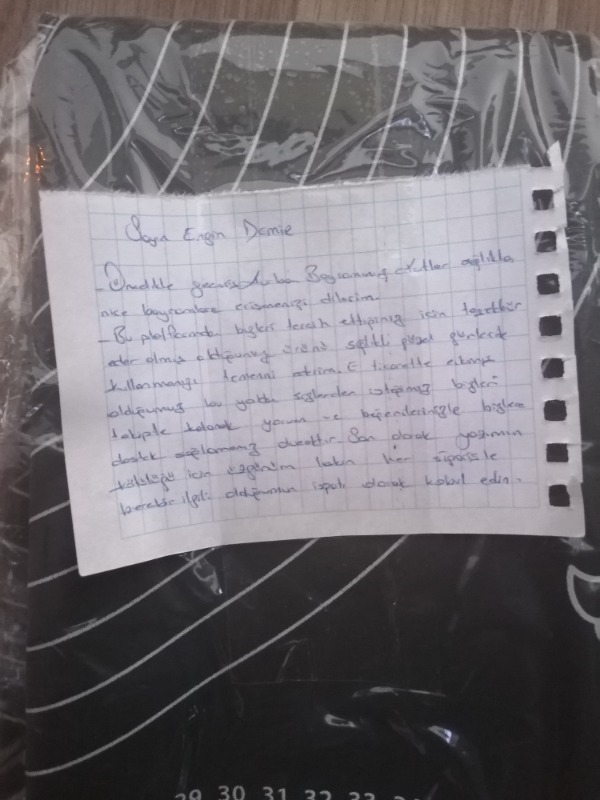 Sayın Engin Demir
- Öncelikle geçmiş Kurban Bayramınızı kutlar sağlıkla
nice bayramlara erişmenizi dilerim.
- Bu platformdan bizleri tercih ettiğiniz için teşekkür
eder almış olduğunuz ürünü sağlıklı güzel günlerde
kullanmanızı temenni ederim. E ticarette çıkmış
olduğumuz bu yolda sizlerden isteğimiz bizleri
takipte kalarak yorum ve beğenilerinizle bizlere
destek sağlamanız olacaktır. Son olarak yazımın
kötülüğü için üzgünüm lakin her siparişle
beraber ilgili olduğumun ispatı olarak kabul edin.
29 30 31 32 33